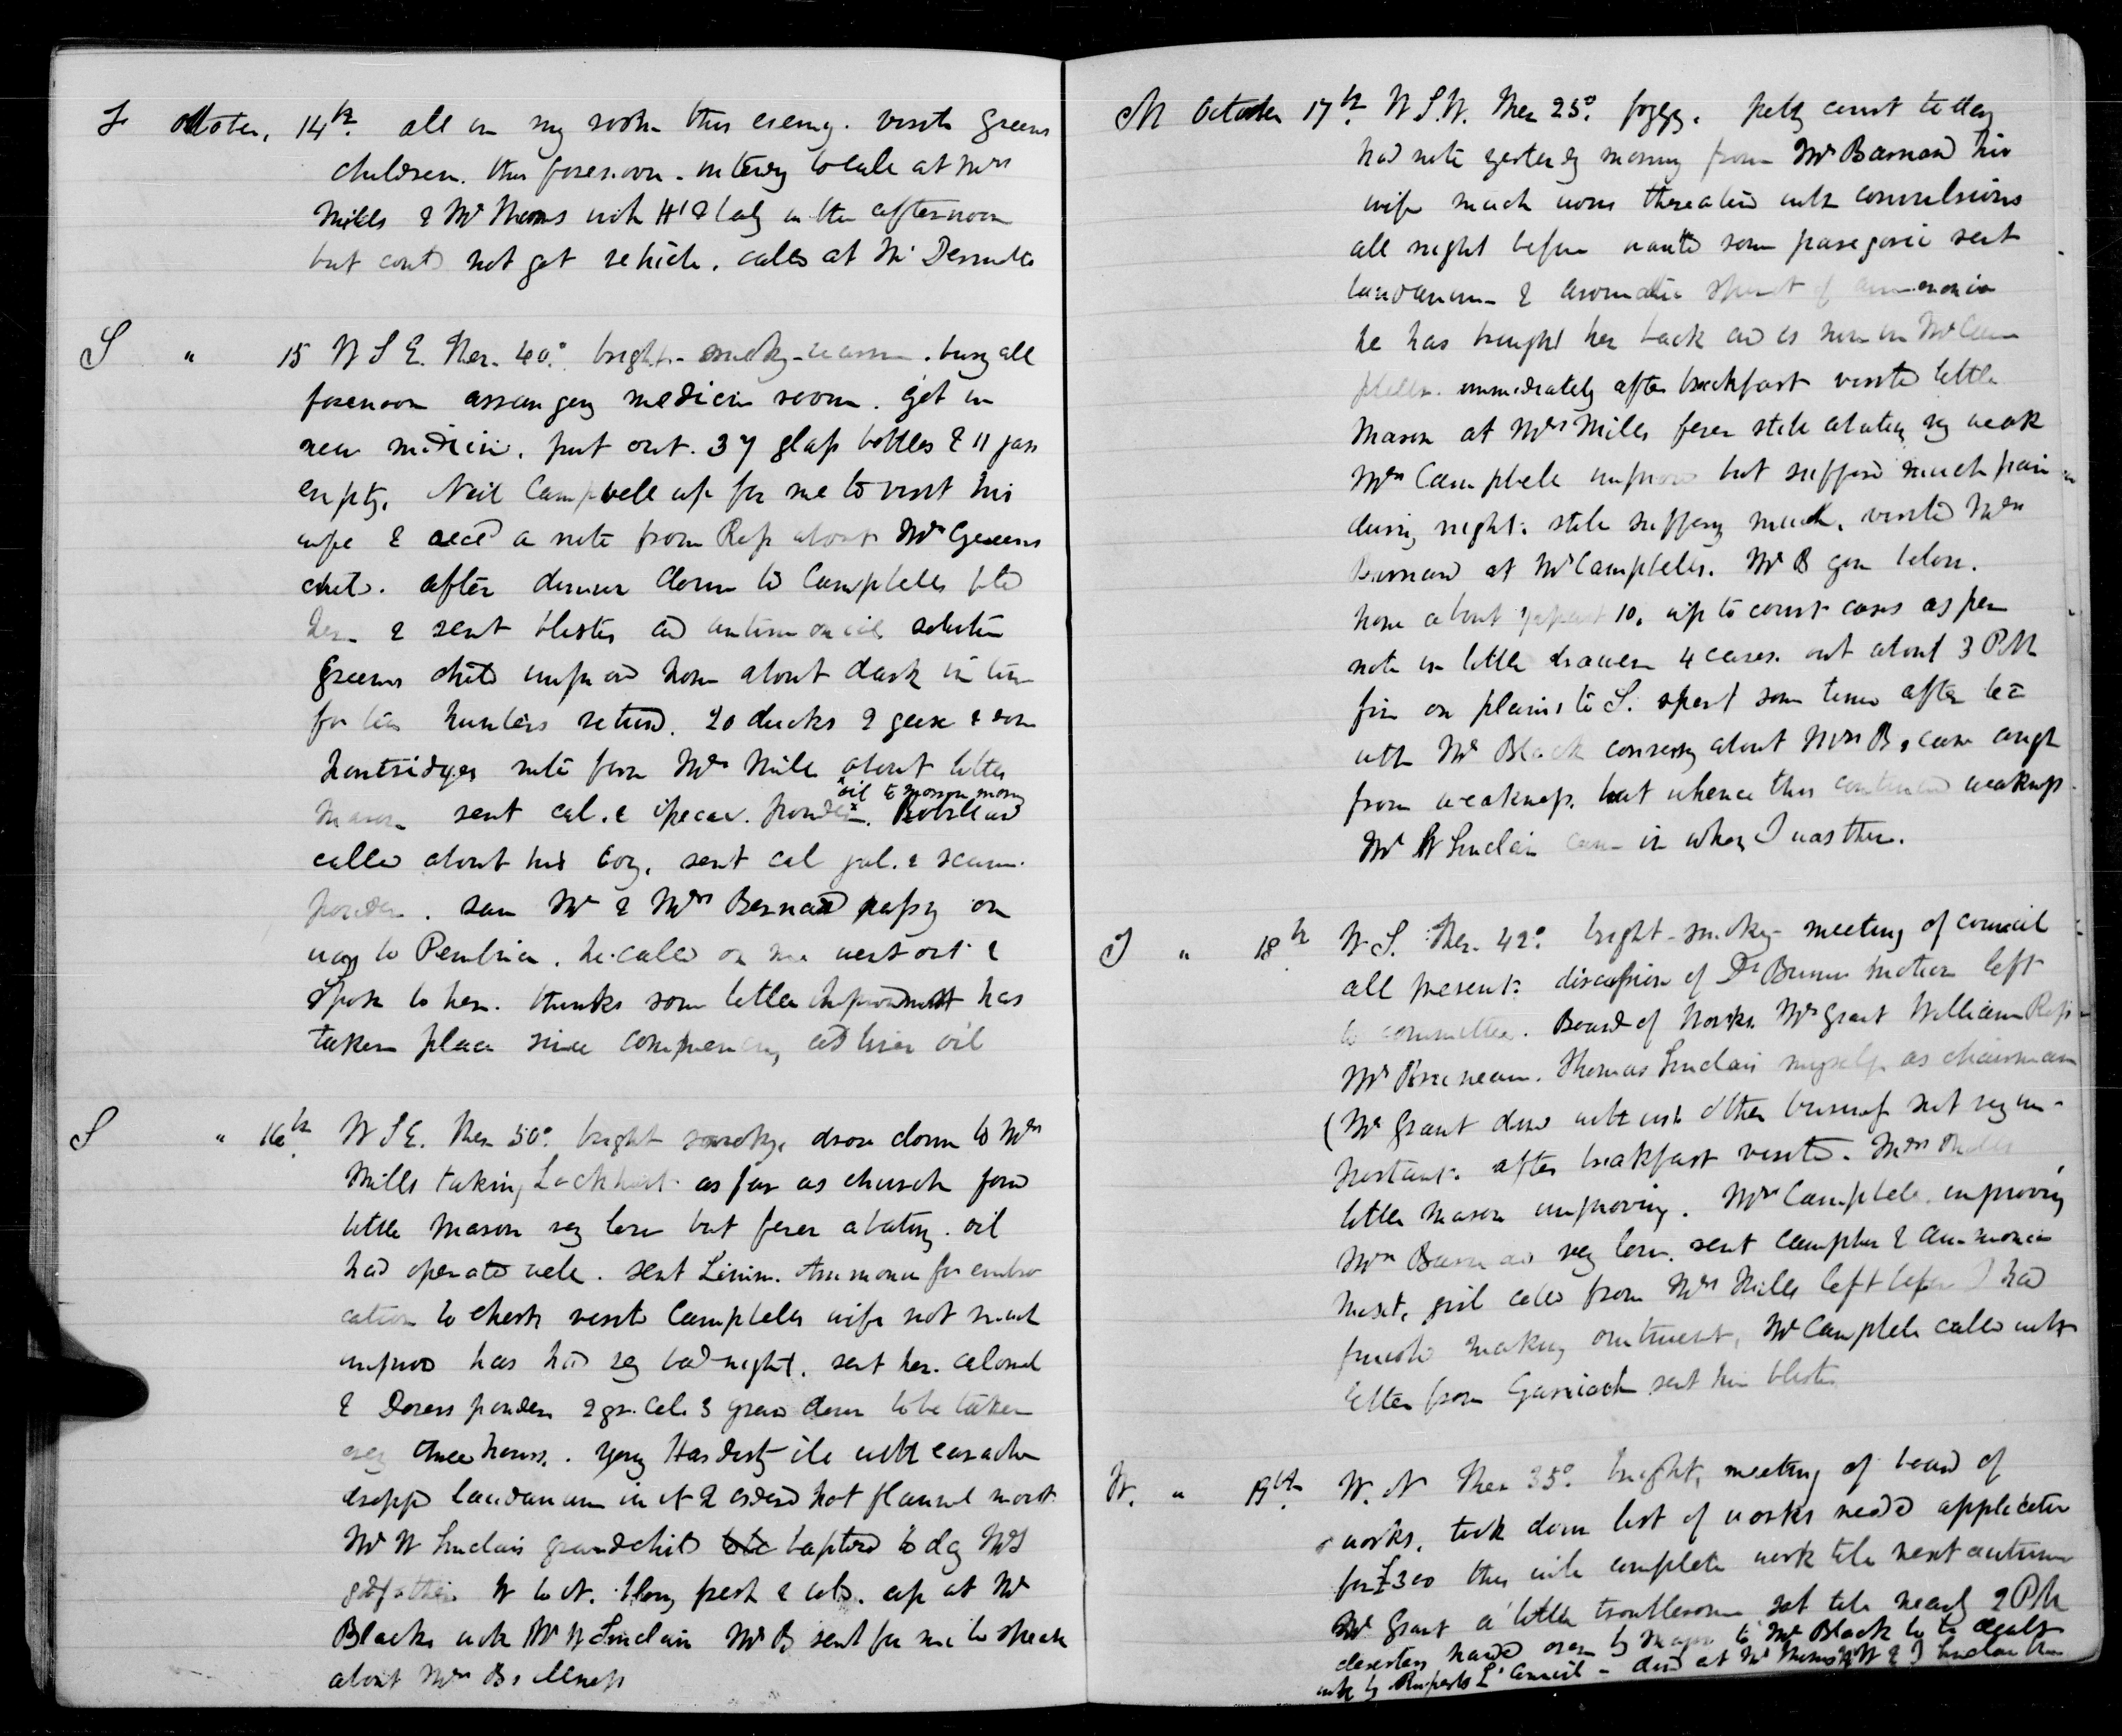 F October, 14th. all in my room this evening. visited Greens
children this forenoon. intending to call at Mrs
Mills & Mr Thoms with Hd & lady in the afternoon
but could not get vehicle. called at Mr
S " 15 W S E. Ther. 40°. bright - smoky - warm. busy all
forenoon arranging medicine room. got in
new medicine. put out 37 glass bottles & 11 jars
empty. Neil Campbell up for me to visit his
wife & recd a note from Ross about Mr Greens
child. after dinner down to Campbells bled
her & sent blister and antimonial solution
Greens child improved home about dark in time
for tea hunters returned. 20 ducks 2 geese & some
partridges note from Mrs Mills about little
oil to Mason morng
Mason sent cal. & ipecac. powders.
called about his boy. sent cal jal. & scam.
powder. saw Mr & Mrs Bernard passing on
way to Pembina. he called on me went out &
spoke to her. thinks some little improvement has
taken place since commencing cod liver oil
S " 16th W S E. Ther 50°. bright smoky. drove down to Mrs
Mills taking Lockhart as far as church found
little Mason very low but fever abating. oil
had operated well. sent Linim. Ammonia for embro
cation to chest visited Campbells wife not much
improved has had very bad night. sent her calomel
& Dovers powders 2 gr. cal. 3 grains dover to be taken
every three hours. young Hardisty ill with earache
dropped laudanum in it & ordered hot flannel moist
Mr W Sinclairs grandchild baptised to day
godfather W to N. blowing fresh & cold. up at Mr
Blacks with Mr W Sinclair Mr B sent for me to speak
about Mrs Bs illness
M October 17th. W S.W. Ther 25°. foggy. petty court to day
had note yesterday morning from Mr Barnard his
wife much worse threatened with convulsions
all night before wanted some paregoric sent
laudanum & aromatic spirit of ammonia
he has brought her back and is now in Mr Cam
pbells. immediately after breakfast visited little
Mason at Mrs Mills fever still abating very weak
Mrs Campbell improved but suffered much pain
during night. still suffering much. visited Mrs
Barnard at Mr Campbells. Mr B gone below.
home about ½ past 10. up to court cases as per
note in little drawer 4 cases. out about 3 PM
fire on plains to S. spent some time after tea
with Mr Black conversing about Mrs Bs case cough
from weakness. but whence this continued weakness.
Mr W Sinclair came in when I was there.
T " 18th W S. Ther. 42°. bright - smoky - meeting of council
all present. discussion of Dr Bunns motion left
to committee. Board of Works Mr Grant William Ross
Mr Bruneau. Thomas Sinclair myself as chairman
(Mr Grant dined with us. other business not very im-
portant. after breakfast visited Mrs Mills
little Mason improving. Mrs Campbell improving
Mrs Barnard very low. sent camphor & ammonia
mixt. girl called from Mrs Mills left before I had
finished making ointment, Mr Campbell called with
letter from Garrioch sent him blister
W. " 19th W. N Ther 35°. bright, meeting of board of
works. took down list of works needed application
for £300 this will complete work till next autumn
Mr Grant a little troublesome sat till nearly 2 PM
deserters handed over by Major to Mr Black to be dealt
with by Ruperts Ld Council - dined at Mr Thoms W & T Sinclair there